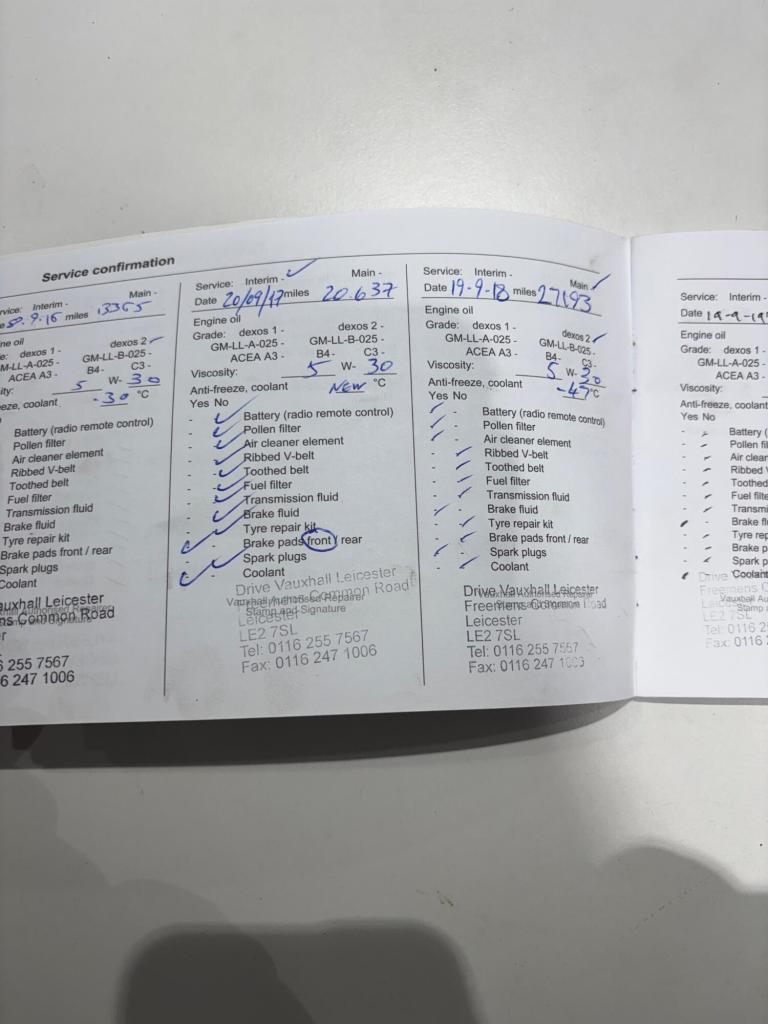 Service confirmation
Interim -
Main -
miles 13365
dexos 2 -
dexos 1 -
GM-LL-B-025 -
GM-LL-A-025 -
B4- C3 -
ACEA A3 -
5 W- 30
-30 °C
Battery (radio remote control)
Pollen filter
Air cleaner element
Ribbed V-belt
Toothed belt
Fuel filter
Transmission fluid
Brake fluid
Tyre repair kit
Brake pads front / rear
Spark plugs
Coolant
Common Road
255 7567
247 1006
Service: Interim - Main -
Date 20/09/17 miles 20.637
Engine oil
Grade: dexos 1 - dexos 2 -
GM-LL-A-025 - GM-LL-B-025 -
ACEA A3 - B4- C3 -
Viscosity: 5 W- 30
Anti-freeze, coolant NEW °C
Yes No
- - Battery (radio remote control)
- - Pollen filter
- - Air cleaner element
- - Ribbed V-belt
- - Toothed belt
- - Fuel filter
- - Transmission fluid
- - Brake fluid
- - Tyre repair kit
- - Brake pads front / rear
- - Spark plugs
- - Coolant
Drive Vauxhall Leicester
Vauxhall Authorised Repairer
Freemens Common Road
Stamp and Signature
Leicester
LE2 7SL
Tel: 0116 255 7567
Fax: 0116 247 1006
Service: Interim - Main -
Date 19-9-18 miles 27193
Engine oil
Grade: dexos 1 - dexos 2 -
GM-LL-A-025 - GM-LL-B-025 -
ACEA A3 - B4- C3 -
Viscosity: 5 W- 30
Anti-freeze, coolant -47°C
Yes No
- - Battery (radio remote control)
- - Pollen filter
- - Air cleaner element
- - Ribbed V-belt
- - Toothed belt
- - Fuel filter
- - Transmission fluid
- - Brake fluid
- - Tyre repair kit
- - Brake pads front / rear
- - Spark plugs
- - Coolant
Drive Vauxhall Leicester
Vauxhall Authorised Repairer
Freemens Common Road
Stamp and Signature
Leicester
LE2 7SL
Tel: 0116 255 7567
Fax: 0116 247 1006
Service: Interim -
Date 19-9-19
Engine oil
Grade: dexos 1 -
GM-LL-A-025 -
ACEA A3 -
Viscosity:
Anti-freeze, coolant
Yes No
- - Battery
- - Pollen
- - Air
- - Ribbed
- - Toothed
- - Fuel
- -
- - Brake
- - Tyre
- - Brake
- - Spark
- - Coolant
Drive
Freemens
Vauxhall
Stamp
LE2 7SL
Tel: 0116
Fax: 0116